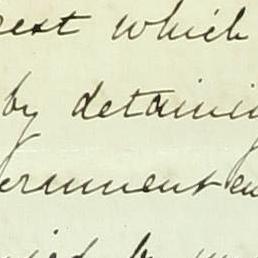 rest which
by detaini
ernment en